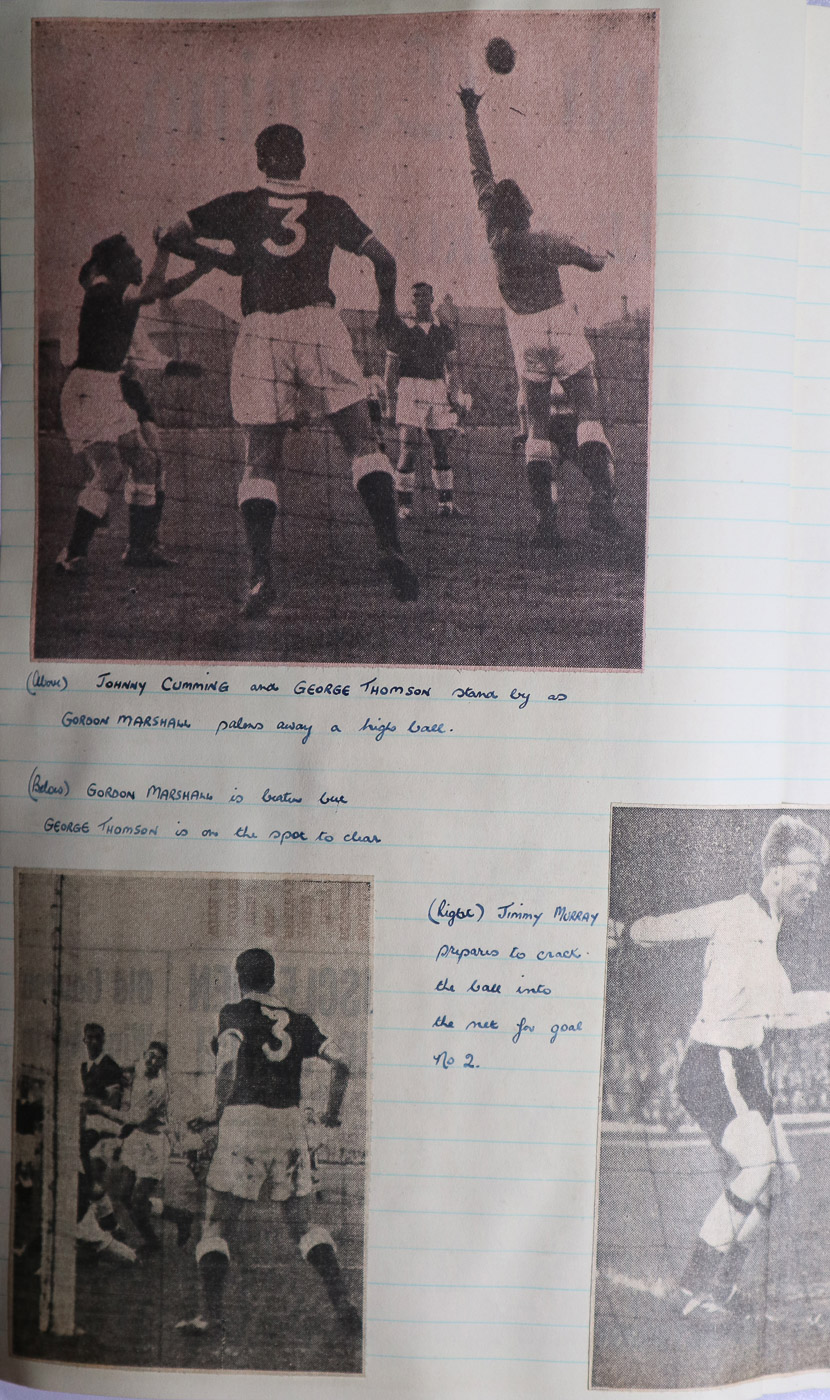 3
(Above) JOHNNY CUMMING and GEORGE THOMSON stand by as
GORDON MARSHALL palms away a high ball.
(Below) GORDON MARSHALL is beaten but
GEORGE THOMSON is on the spot to clear
3
(Right) Jimmy MURRAY
prepares to crack
the ball into
the net for goal
No 2.